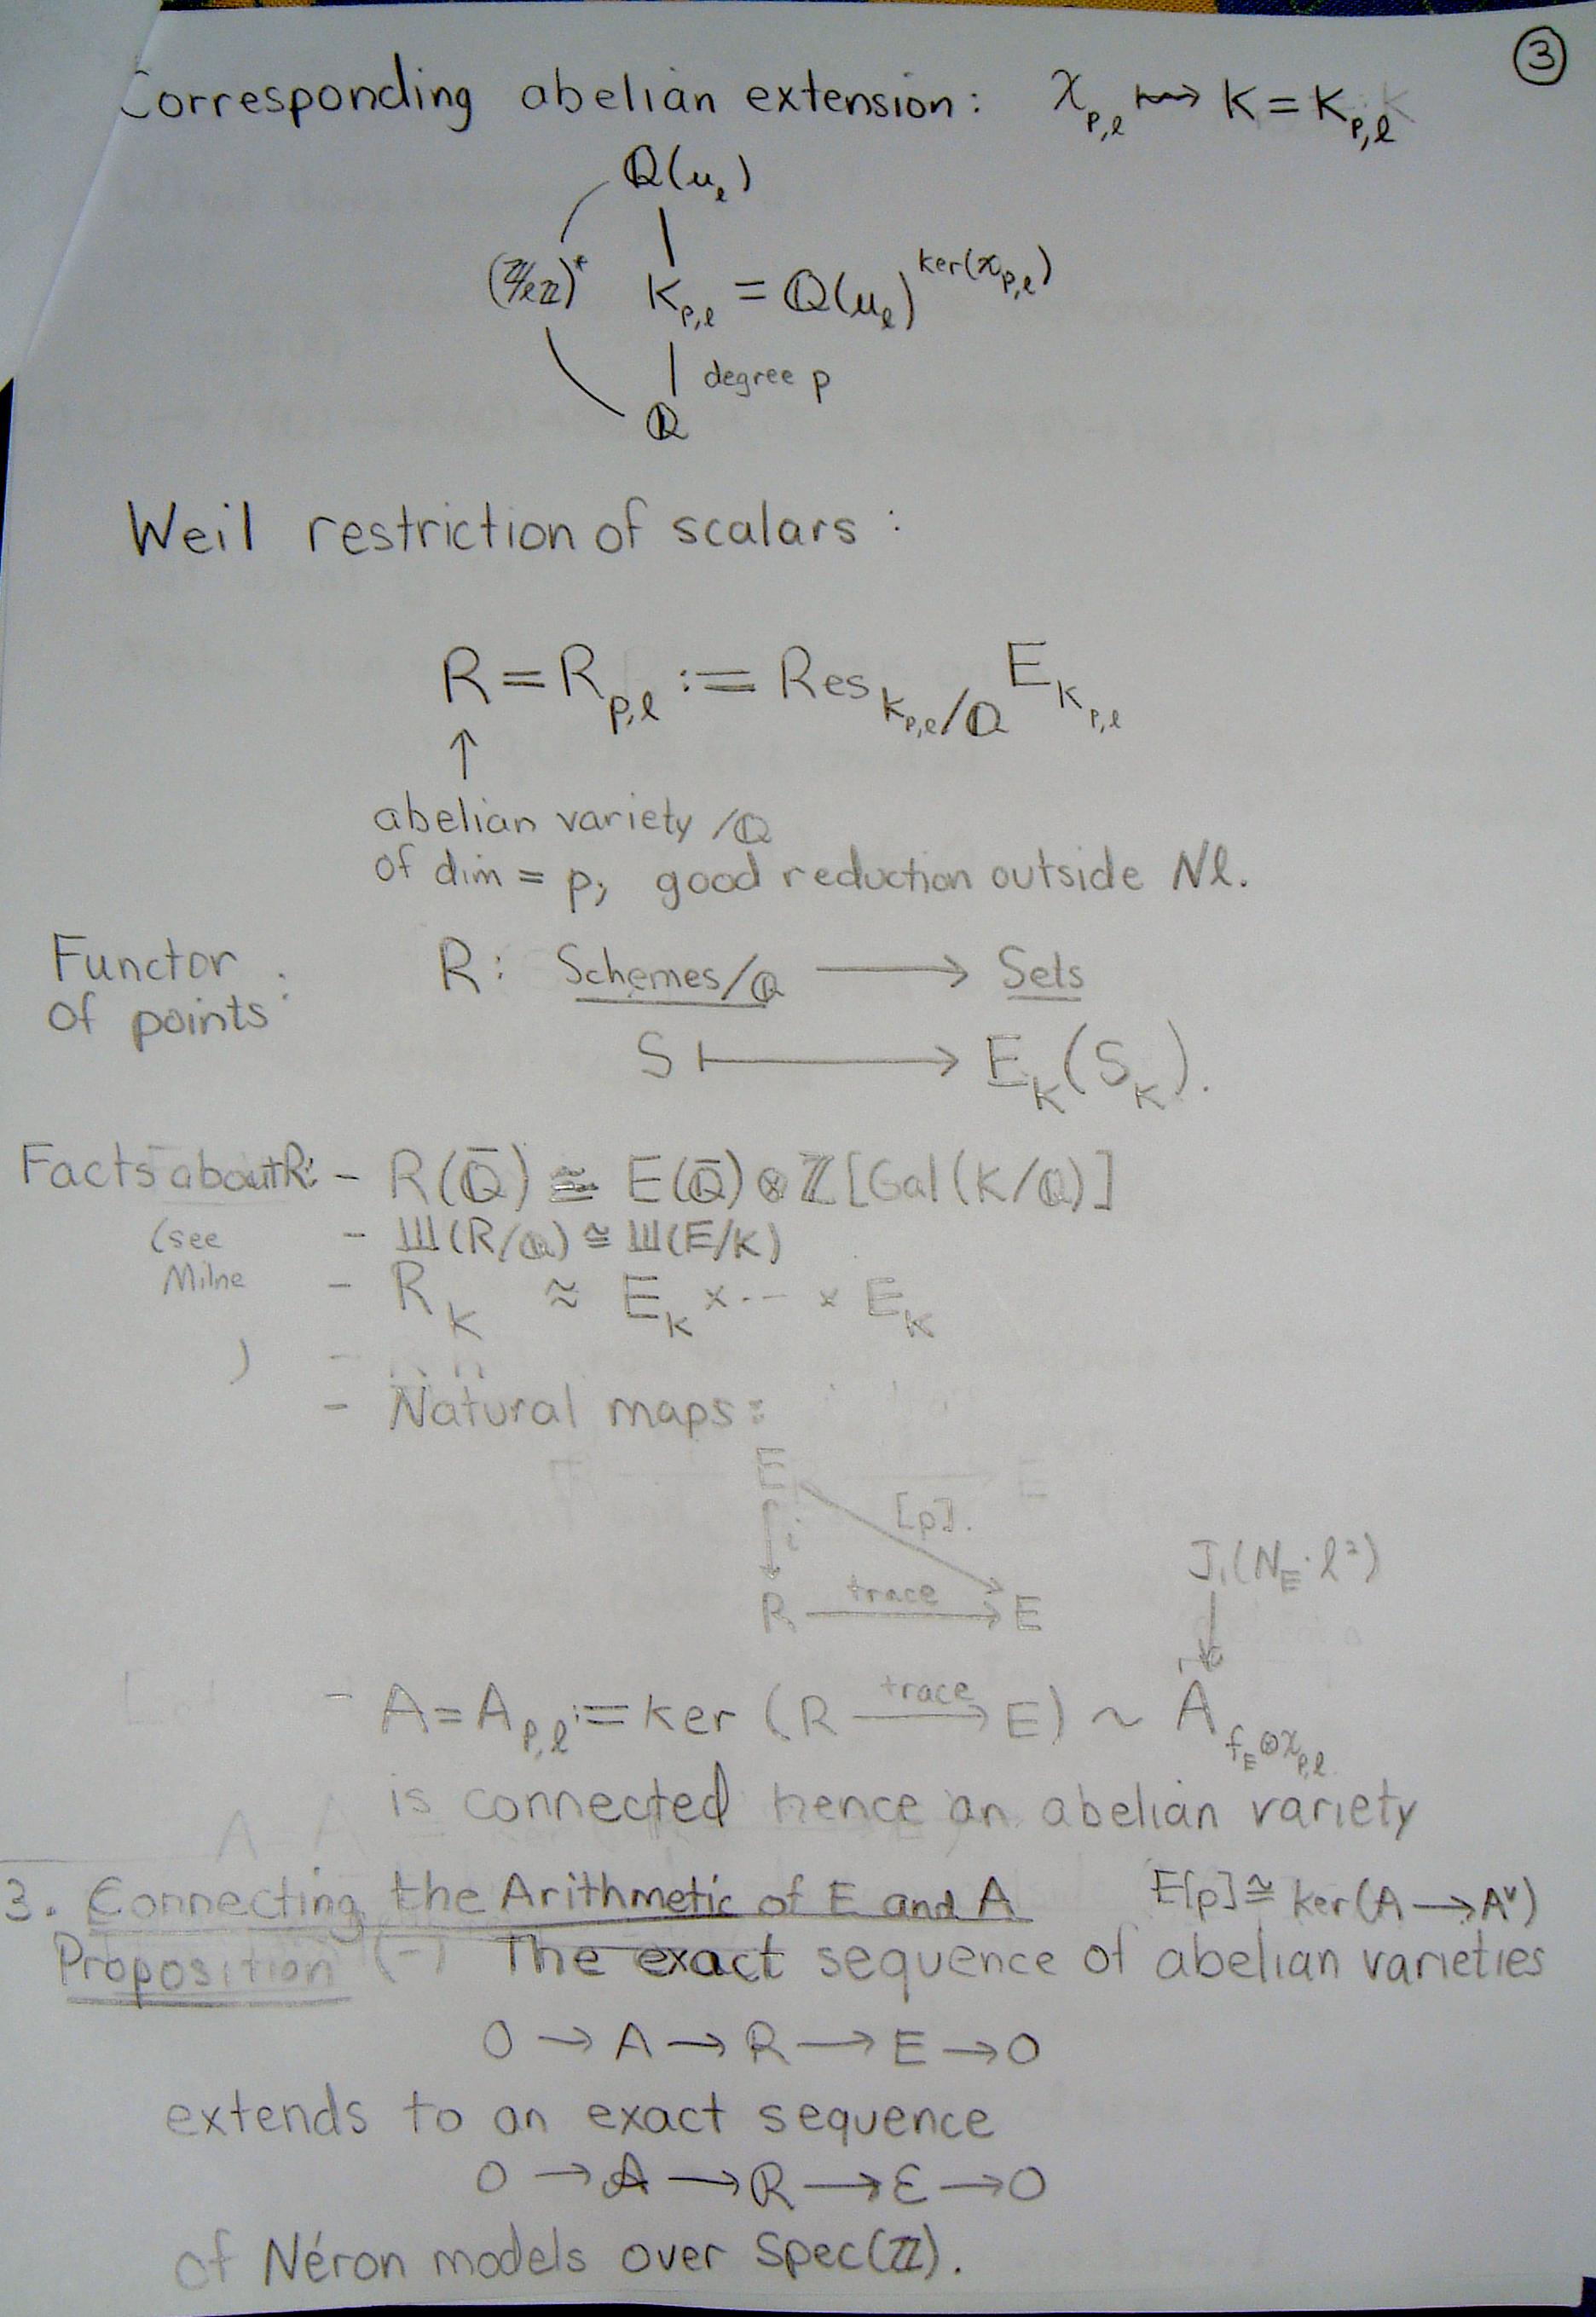 ③
Corresponding abelian extension: χ_{p,ℓ} ⟿ K = K_{p,ℓ}
ℚ(μ_ℓ)
(ℤ/ℓℤ)* K_{p,ℓ} = ℚ(μ_ℓ)^{ker(χ_{p,ℓ})}
degree p
ℚ
Weil restriction of scalars :
R = R_{p,ℓ} := Res_{K_{p,ℓ}/ℚ} E_{K_{p,ℓ}}
↑
abelian variety /ℚ
of dim = p; good reduction outside Nℓ.
Functor of points: R: Schemes/ℚ ⟶ Sets
S ⟼ E_K(S_K).
Facts about R: - R(ℚ̄) ≅ E(ℚ̄) ⊗ ℤ[Gal(K/ℚ)]
(see - Ш(R/ℚ) ≅ Ш(E/K)
Milne - R_K ≈ E_K × ⋯ × E_K
) -
- Natural maps:
E
i [p].
R trace ⟶ E
J₁(N_E · ℓ²)
↓
- A = A_{p,ℓ} := ker (R trace⟶ E) ~ A_{f_E⊗χ_{p,ℓ}}
is connected hence an abelian variety
3. Connecting the Arithmetic of E and A E[p] ≅ ker(A → A^∨)
Proposition (-) The exact sequence of abelian varieties
0 → A → R → E → 0
extends to an exact sequence
0 → 𝒜 → ℛ → ℰ → 0
of Néron models over Spec(ℤ).